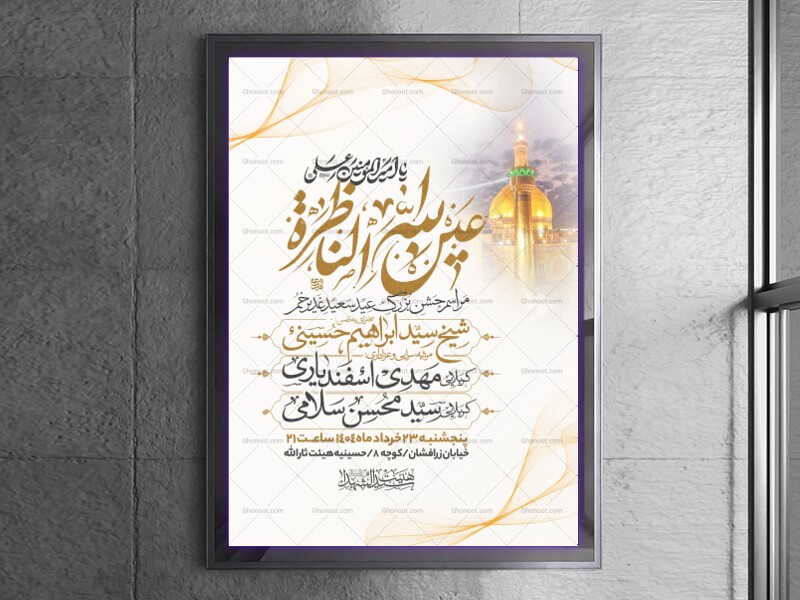 یا امیرالمومنین علی
عین الله الناظرة
مراسم جشن بزرگ عید سعید غدیر خم
شیخ سید ابراهیم حسینی
مرثیه سرایی و عزاداری:
کربلایی مهدی اسفندیاری
کربلایی سید محسن سلامی
پنجشنبه ۲۳ خرداد ماه ۱۴۰۴ ساعت ۲۱
خیابان زرافشان / کوچه ۸ / حسینیه هیئت ثارالله
هیئت سیدالشهدا
Ghonoot.com